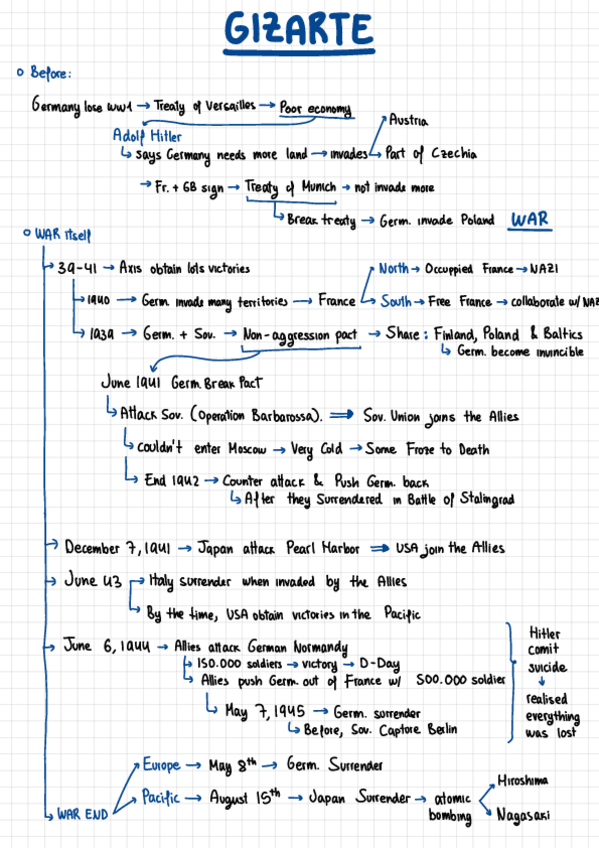 GIZARTE
Before:
Germany lose WW1 → Treaty of Versailles → Poor economy
Austria
Adolf Hitler
says Germany needs more land → invades Part of Czechia
→ Fr. + GB sign → Treaty of Munich → not invade more
Break treaty → Germ. invade Poland WAR
WAR itself
39-41 → Axis obtain lots victories
North → Occupied France → NAZI
1940 → Germ. invade many territories → France South → Free France → collaborate w/ NAZ
1939 → Germ. + Sov. → Non-aggression pact → Share: Finland, Poland & Baltics
Germ. become invincible
June 1941 Germ. Break Pact
Attack Sov. (Operation Barbarossa). ⇒ Sov. Union joins the Allies
couldn't enter Moscow → Very Cold → Some Froze to Death
End 1942 → Counter attack & Push Germ. back
After they Surrendered in Battle of Stalingrad
December 7, 1941 → Japan attack Pearl Harbor ⇒ USA join the Allies
June 43 Italy surrender when invaded by the Allies
By the time, USA obtain victories in the Pacific
June 6, 1944 → Allies attack German Normandy
150.000 soldiers → victory → D-Day
Allies push Germ. out of France w/ 500.000 soldier
May 7, 1945 → Germ. surrender
Before, Sov. Capture Berlin
Hitler
comit
suicide
↓
realised
everything
was lost
Europe → May 8th → Germ. Surrender
Hiroshima
Pacific → August 15th → Japan Surrender → atomic
bombing
Nagasaki
WAR END